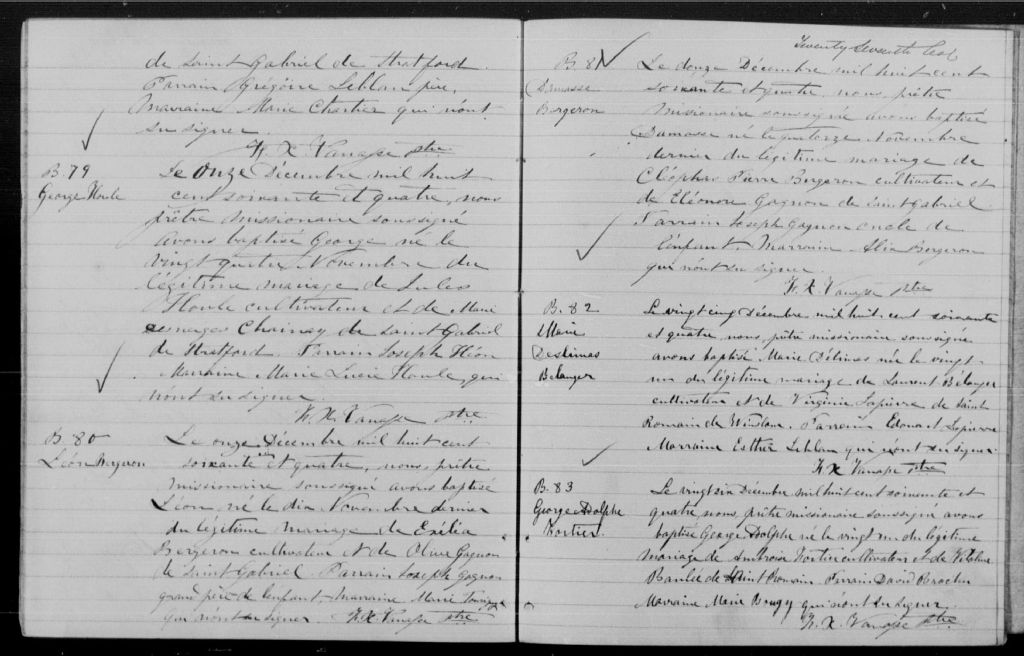 de Saint Gabriel de Stratford.
Parrain Grégoire Leblanc père,
Marraine Marie Chartier qui n'ont
su signer.
H. X. Vanasse ptre
B. 79
George Houle
Le Onze Décembre mil huit
cent soixante et quatre, nous
prêtre missionaire soussigné
avons baptisé George né le
vingt quatre Novembre du
légitime mariage de Jules
Houle cultivateur et de Marie
Chainay de Saint Gabriel
de Stratford. Parrain Joseph Héon
Marraine Marie Lucie Houle, qui
n'ont su signer.
H. X. Vanasse ptre
B. 80
Léon Bergeron
Le onze Décembre mil huit cent
soixante et quatre, nous, prêtre
missionaire soussigné avons baptisé
Léon, né le dix Novembre dernier
du légitime mariage de Exélia
Bergeron cultivateur et de Olive Gagnon
de Saint Gabriel. Parrain Joseph Gagnon
grand père de l'enfant. Marraine Marie
qui n'ont su signer. H. X. Vanasse ptre
Twenty Seventh leaf
B. 81
Damasse
Bergeron
Le douze Décembre mil huit cent
soixante et quatre, nous, prêtre
missionaire soussigné avons baptisé
Damasse né le quatorze Novembre
dernier du légitime mariage de
Cléophas Pierre Bergeron cultivateur et
de Eléonore Gagnon de Saint Gabriel.
Parrain Joseph Gagnon oncle de
l'enfant. Marraine Alia Bergeron
qui n'ont su signer.
H. X. Vanasse ptre
B. 82
Marie
Deslimas
Belanger
Le vingt cinq Décembre mil huit cent soixante
et quatre, nous, prêtre missionaire soussigné
avons baptisé Marie Délimas née le vingt
un du légitime mariage de Laurent Bélanger
cultivateur et de Virginie Lapierre de Saint
Romain de Winslow. Parrain Edouard Lapierre
Marraine Esther Leblanc qui n'ont su signer.
H X Vanasse ptre
B. 83
George Adolphe
Fortier.
Le vingt six Décembre mil huit cent soixante et
quatre, nous, prêtre missionaire soussigné avons
baptisé George Adolphe né le vingt un du légitime
mariage de Ambroise Fortier cultivateur et de
de Saint Romain Parrain David
Marraine Marie Bougy qui n'ont su signer.
H. X. Vanasse ptre